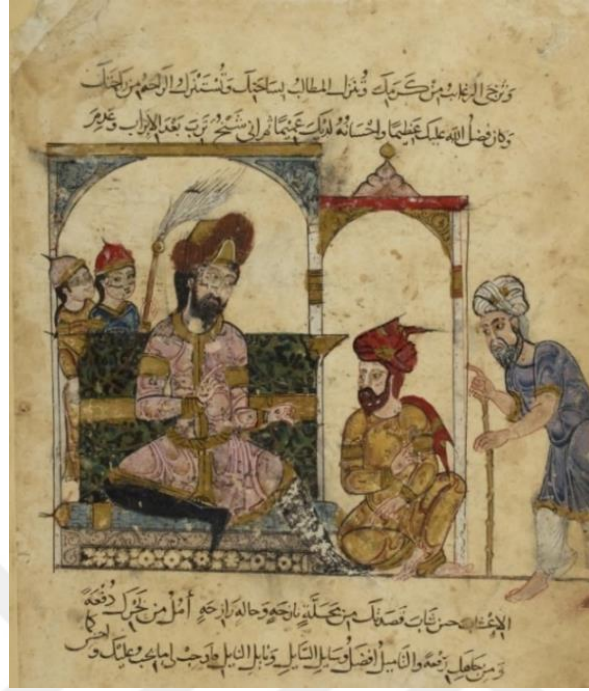 وترجى الرغائب من كرمك وتنزل المطالب بساحتك وتستنزل الراحة من راحتك
وكان فضل الله عليك عظيما واحسانه لديك عميما ثم اني شيخ ترب بعد الاتراب وعدم
الاعشاب حين شاب قصدتك من محلة نازحة وحالة رازحة آمل من بحرك دفعة
ومن جاهك رفعة والتاميل افضل وسايل السايل ونايل النايل فاوجب لي ما يجب عليك واحسن كما